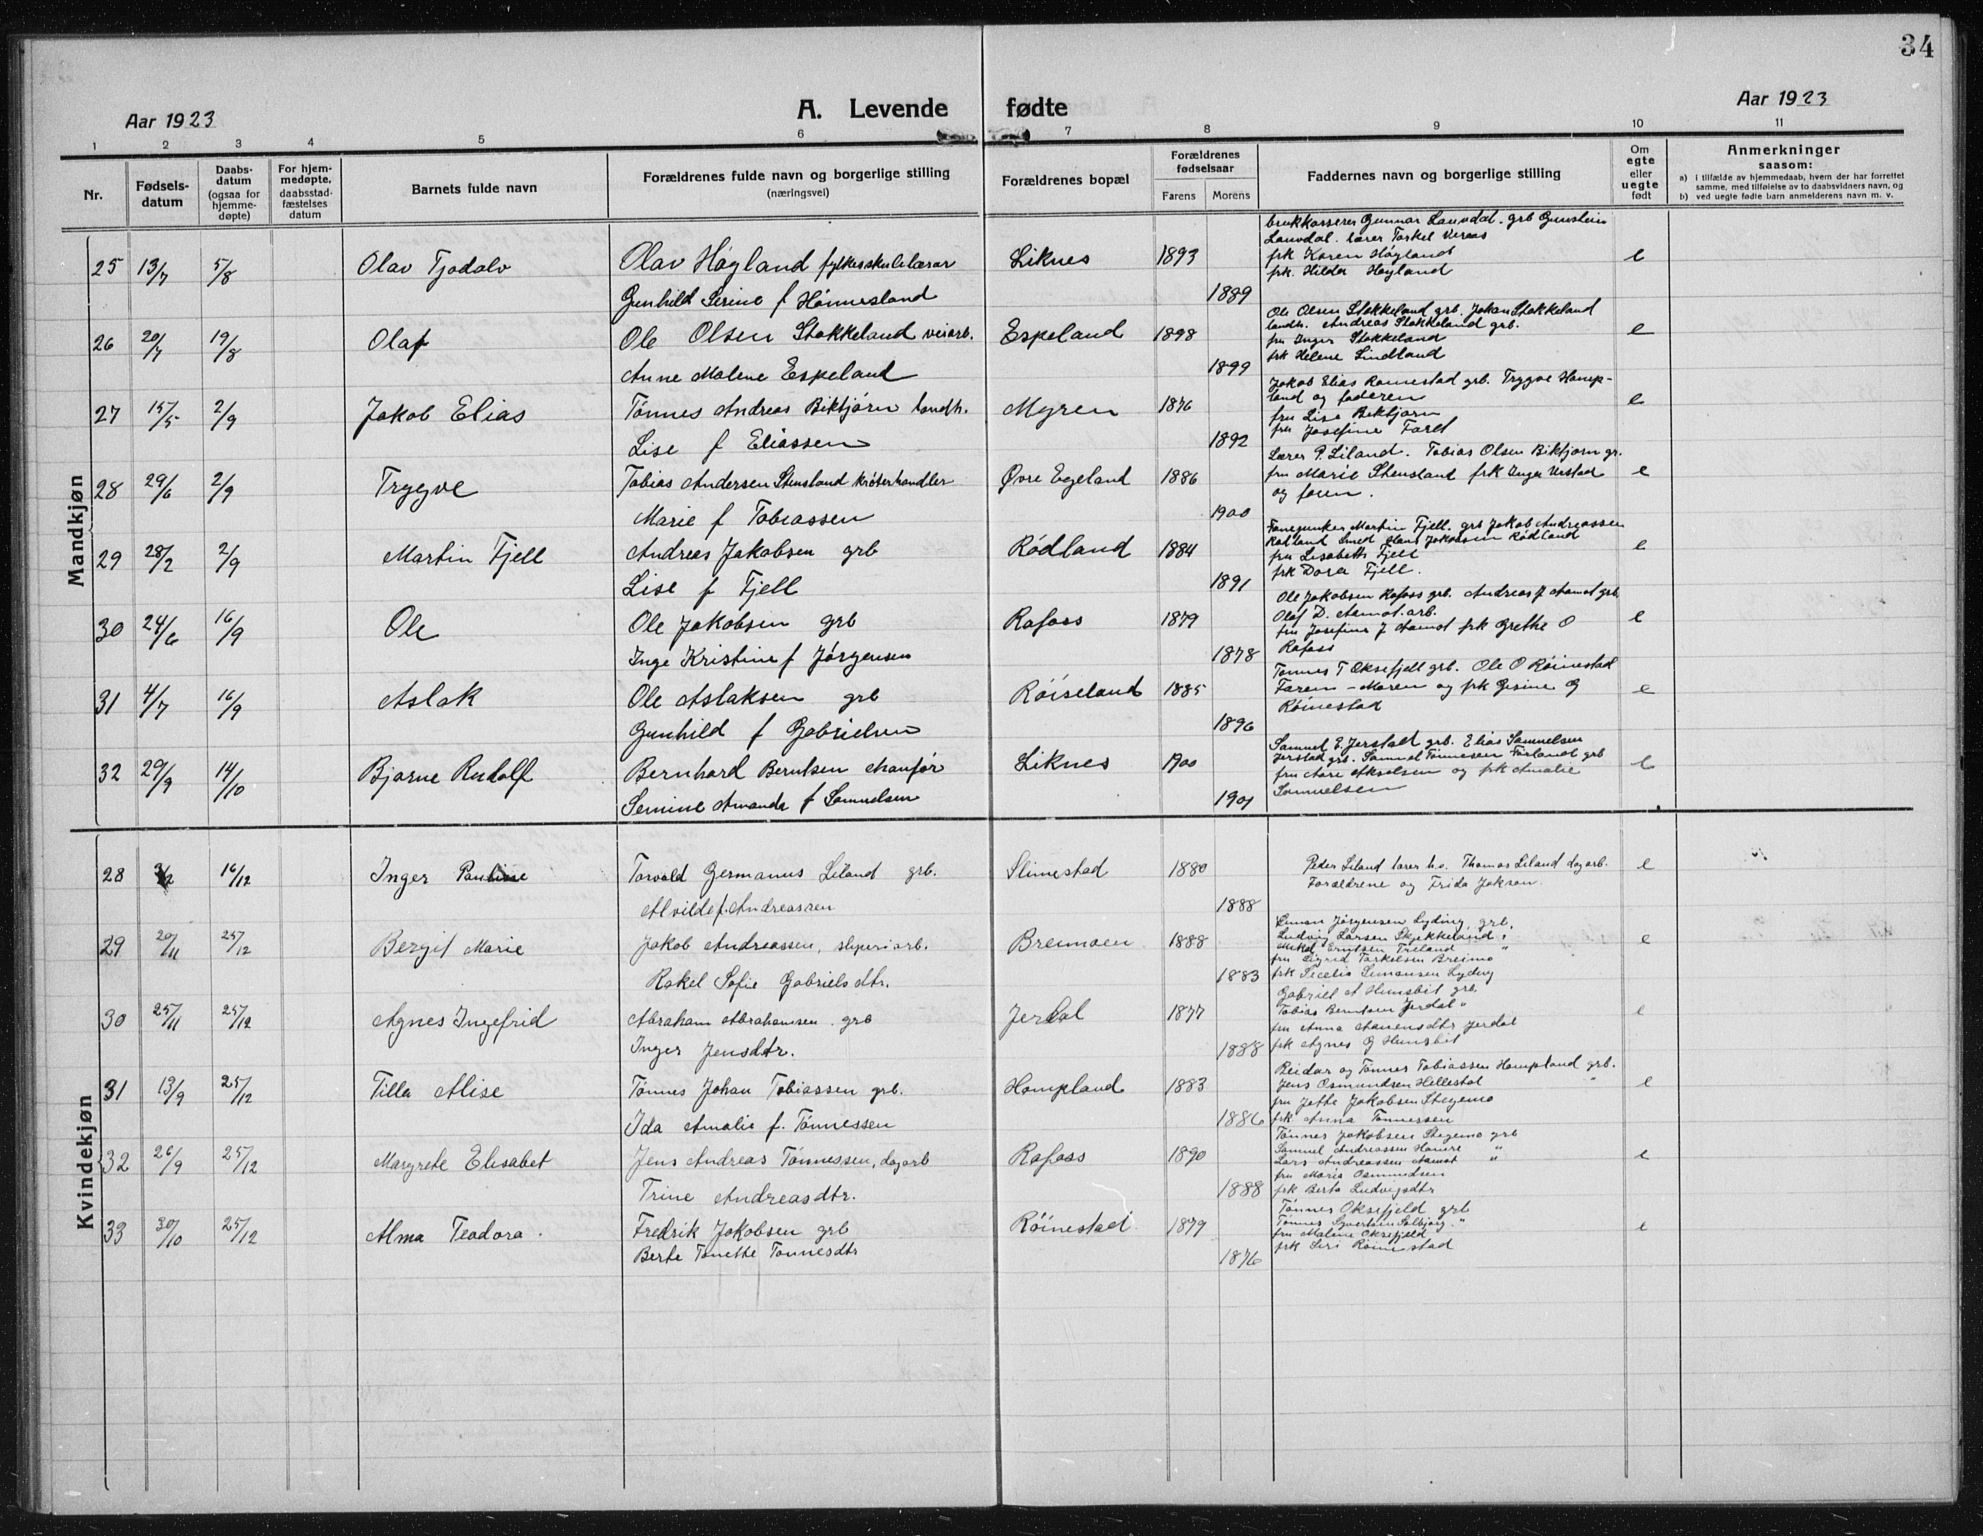 34
Aar 1923
A. Levende fødte
Aar 1923
1 2 3 4 5 6 7 8 9 10 11
Nr.
Fødsels-
datum
Daabs-
datum
(ogsaa for
hjemme-
døpte)
For hjem-
medøpte,
daabsstad-
fæstelses
datum
Barnets fulde navn
Forældrenes fulde navn og borgerlige stilling
(næringsvei)
Forældrenes bopæl
Forældrenes
fødselsaar
Farens Morens
Faddernes navn og borgerlige stilling
Om
egte
eller
uegte
født
Anmerkninger
saasom:
a) i tilfælde av hjemmedaab, hvem der har forrettet
samme, med tilføielse av to daabsvidners navn, og
b) ved uegte fødte barn anmelderens navn m. v.
Mandkjøn
25 13/7 5/8 Olav Tjodolv Olav Høgland fylkesskulelærar Liknes 1893 e
Gunhild Serine f Hønnesland 1889
Gunnar Lauvdal. grb Gunstein
Lauvdal. lærer Torkel
frk Karen Høgland
frk. Hilda Høgland
26 20/7 19/8 Olaf Ole Olsen Stokkeland veiarb. Espeland 1898 e
Anne Malene Espeland 1899
Ole Olsen Stokkeland grb. Johan Stokkeland
landh. Andreas Stokkeland grb.
fru Inger Stokkeland
frk Helene Lindland
27 15/5 2/9 Jakob Elias Tønnes Andreas Bikbjørn landh. Myren 1876 e
Lise f Eliassen 1892
Jakob Elias Romestad grb. Trygve Homp-
land og faderen
fru Lise Bikbjorn
fru Josefine
28 29/6 2/9 Trygve Tobias Andersen Stensland krøterhandler Øvre Egeland 1886 e
Marie f Tobiassen 1900
Lærer P. Liland. Tobias Olsen Bikbjorn gr.
fru Marie Stensland frk Inger
og faren.
29 28/2 2/9 Martin Fjell Andreas Jakobsen grb Rødland 1884 e
Lise f Fjell 1891
Martin Fjell. grb Jakob Andreassen
Rødland Smed Hans Jakobsen Rødland
fru Lisabeth Fjell
frk Dora Fjell.
30 24/6 16/9 Ole Ole Jakobsen grb Rafoss 1879 e
Inge Kristine f Jørgensen 1878
Ole Jakobsen Rafoss grb. Andreas J Aamot grb.
Olaf D. Aamot. arb.
fru Josefine J Aamot frk Grethe O
Rafoss
31 4/7 16/9 Aslak Ole Aslaksen grb Røiseland 1885 e
Gunhild f Gabrielsen 1896
Tønnes T Oksefjell grb. Ole O Røinestad
Faren - Moren og frk Gesine G
Røinestad
32 29/9 14/10 Bjarne Rudolf Bernhard Berntsen chauför Liknes 1900 e
Semine Amanda f Samuelsen 1901
Samuel E. Jerstad grb. Elias Samuelsen
Jerstad grb. Samuel Tønnesen Førland grb
fru Aare Akselsen og frk Amalie
Samuelsen
Kvindekjøn
28 16/12 Inger Pauline Torvald Germanus Liland grb. Slimestad 1880 e
Alvilde f. Andreassen 1888
Peder Liland lærer h.o. Thomas Liland dagarb.
Forældrene og Frida Jakson.
29 20/11 25/12 Bergit Marie Jakob Andreassen, sliperiarb. Breimoen 1888 e
Rakel Sofie Gabrielsdtr. 1883
Simon Jørgensen Lyding grb.
Ludvig Larsen Skjekkeland "
Mikal Erntsen Treland "
fru Sigrid Torkelsen Breimo
frk Secelia Simonsen Lyding
30 25/11 25/12 Agnes Ingefrid Abraham Abrahamsen. grb Jerdal 1877 e
Inger Jensdtr. 1888
Gabriel A Hunsbit grb
Tobias Berntsen Jerdal "
fru Anna Aanensdtr Jerdal
frk Agnes G Hunsbit
31 13/9 25/12 Tilla Alise Tønnes Johan Tobiassen grb. Hompland 1883 e
Ida Amalie f. Tønnessen 1886
Reidar og Tønnes Tobiassen Hompland grb.
Jens Osmundsen Hellestol "
fru Jothe Jakobsen Stegemo
frk Anna Tønnessen
32 26/9 25/12 Margrete Elisabet Jens Andreas Tønnessen, dagarb Rafoss 1890 e
Trine Andreasdtr. 1888
Tønnes Jakobsen Stegemo grb
Samuel Andreassen "
Lars Andreassen Aamot "
fru Maria Osmundsen
frk Berta Ludvigsdtr
33 30/10 25/12 Alma Teodora. Fredrik Jakobsen grb Røinestad 1879 e
Berte Tonette Tonnesdtr 1876
Tønnes Oksefjeld grb
Tønnes Syvertsen Solbjørg. "
fru Malene Oksefjeld
frk Siri Røinestad